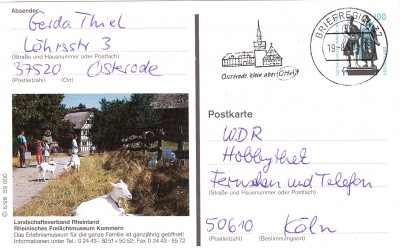 Absender
Gerda Thiel
Löhrsstr 3
(Straße und Hausnummer oder Postfach)
37520 Osterode
(Postleitzahl) (Ort)
BRIEFREGION 37
19.-8
100
Osterode, klein aber
Postkarte
WDR
Hobbythek
Fernsehen und Telefon
(Straße und Hausnummer oder Postfach)
50610 Köln
(Postleitzahl) (Bestimmungsort)
© 5/98 59 000
Landschaftsverband Rheinland
Rheinisches Freilichtmuseum Kommern
Das Erlebnismuseum für die ganze Familie ist ganzjährig geöffnet!
Informationen unter Tel.: 0 24 43 - 80 51 + 50 52, Fax 0 24 43 - 55 72